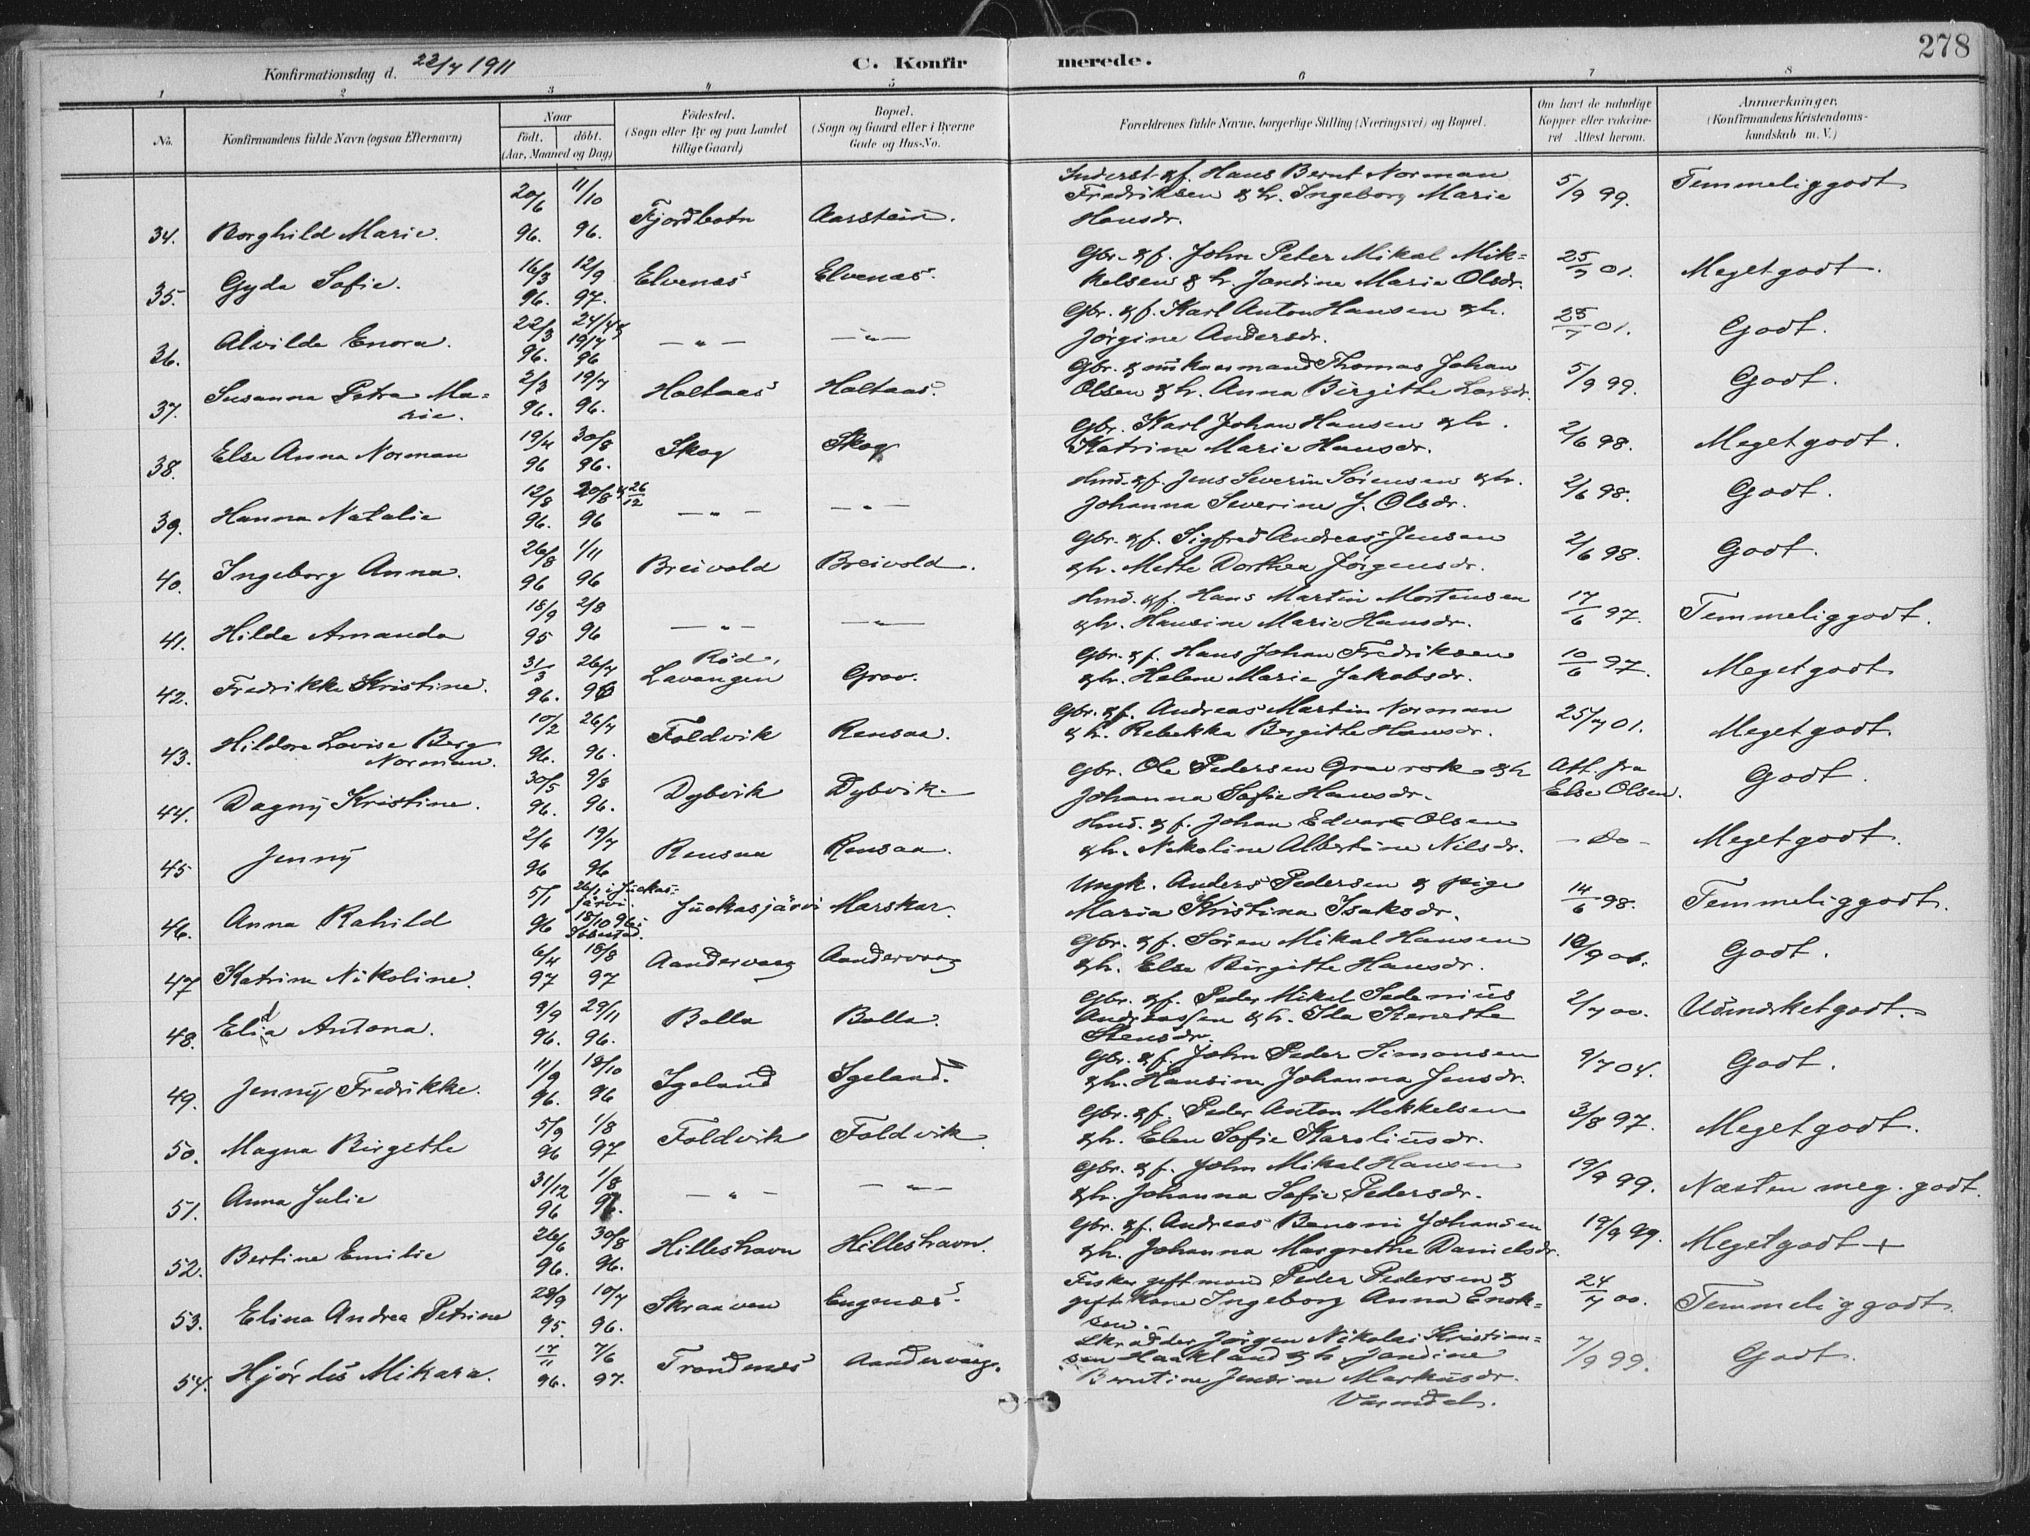 278
Konfirmationsdag d. 23/7 1911 C. Konfirmerede.
1 2 3 4 5 6 7 8
No. Konfirmandens fulde Navn (ogsaa Efternavn) Naar født. døbt. (Aar, Maaned og Dag) Fødested. (Sogn eller By og paa Landet tillige Gaard) Bopæl. (Sogn og Gaard eller i Byerne Gade og Hus-No. Forældrenes fulde Navne, borgerlige Stilling (Næringsvei) og Bopæl. Om havt de naturlige Kopper eller vakcineret Attest herom. Anmærkninger. (Konfirmandens Kristendomskundskab m. V.)
34. Borghild Marie. 20/6 96. 11/10 96. Fjordbotn Aarstein. Inderst. gf. Hans Bernt Norman Fredriksen & h. Ingeborg Marie Hansdr. 5/9 99. Temmelig godt
35. Gyda Sofie. 16/3 96. 12/9 97. Elvenæs Elvenæs. Gbr. gf. John Peter Mikal Mikkelsen & h. Jandine Marie Olsdr. 25/7 01. Meget godt.
36. Alvilde Enora. 22/3 96. 24/4 & 19/7 96 — „ — — „ — Gbr. gf. Karl Anton Hansen & h. Jørgine Andersdr. 25/7 01. Godt.
37. Susanna Petra Marie. 2/3 96. 19/7 96. Holtaas Holtaas. Gbr. & enkemand Thomas Johan Olsen & h. Anna Birgithe Larsdr. 5/9 99. Godt.
38. Else Anna Norman 19/4 96 30/8 96. Skog Skog Gbr. Karl Johan Hansen & h. Katrine Marie Hansdr. 2/6 98. Meget godt.
39. Hanna Natalie 12/8 96. 20/8 & 26/12 96 — „ — — „ — Hmd. gf. Jens Severin Sørensen & h. Johanna Severine J. Olsdr. 2/6 98. Godt.
40. Ingeborg Anna. 26/8 96 1/11 96 Breivold Breivold. Gbr. gf. Sigfred Andreas Jensen & h. Mette Dorthea Jørgensdr. 2/6 98. Godt.
41. Hilda Amanda 18/9 95 2/8 96 — „ — — „ — Hmd. gf. Hans Martin Mortensen & h. Hansine Marie Hansdr. 17/6 97. Temmelig godt.
42. Fredrikke Kristine. 31/3 96. 26/7 96 Rød, Lavangen Grov. Gbr. gf. Hans Johan Fredriksen & h. Helene Marie Jakobsdr. 10/6 97. Meget godt
43. Hildora Lovise Berg Norman. 10/2 96. 26/7 96. Foldvik Rensaa. Gbr. gf. Andreas Martin Norman & h. Rebekka Birgithe Hansdr. 25/7 01. Meget godt
44. Dagny Kristine. 30/5 96. 9/8 96. Dybvik Dybvik. Gbr. Ole Pedersen Gravrok & h Johanna Sofie Hansdr. Att. fra Else Olsen. Godt.
45 Jenny 2/6 96 19/7 96 Rensaa Rensaa. Hmd. gf. Johan Edvard Olsen & h. Nikoline Albertine Nilsdr. — Do — Meget godt.
46. Anna Rahild 5/1 96 26/1 i Juckasjärvi. 18/10 96 i Ibbestad. Juckasjärvi Marskar. Ungk. Anders Pedersen & pige Maria Kristina Isaksdr. 14/6 98. Temmelig godt.
47 Katrine Nikoline. 6/4 97 18/8 97 Aandervaag Aandervaag Gbr. gf. Søren Mikal Hansen & h. Else Birgithe Hansdr. Godt.
48. Elida Antona. 9/9 96. 29/11 96. Bolla Bolla. Gbr. gf. Peder Mikal Sedenius Andreassen & h. Ida Stensdr. 2/7 00. Udmerket godt.
49. Jenny Fredrikke. 11/9 96. 18/10 96 Igeland Igeland. Gbr. gf. John Peder Simonsen & h. Hansine Johanna Jensdr. 9/7 04. Godt.
50. Magna Birgithe 5/9 96 1/8 97 Foldvik Foldvik. Gbr. gf. Peder Anton Mikkelsen & h. Elen Sofie Karoliusdr. 3/8 97. Meget godt.
51. Anna Julie 31/12 96 1/8 97. — „ — — „ — Gbr. gf. John Mikal Hansen & h. Johanna Sofie Pedersdr. 19/9 99. Næsten meg. godt.
52. Bertine Emilie 26/6 96. 30/8 96. Hilleshavn Hilleshavn. Gbr. gf. Andreas Benoni Johansen & h. Johanna Margrethe Danielsdr. 19/9 99. Meget godt +
53. Elina Andrea Petrine 28/9 95. 10/7 96. Skraaven Engenæs. Fisker gift mand Peder Pedersen & gift kone Ingeborg Anna Enoksen. 24/7 00. Temmelig godt.
54. Hjørdis Mikara. 17/11 96. 7/6 97. Trondenæs Aandervaag. Skrædder Jørgen Nikolai Kristiansen Haakland & h. Jandine Berntine Jensine Markusdr. 7/9 99. Godt.